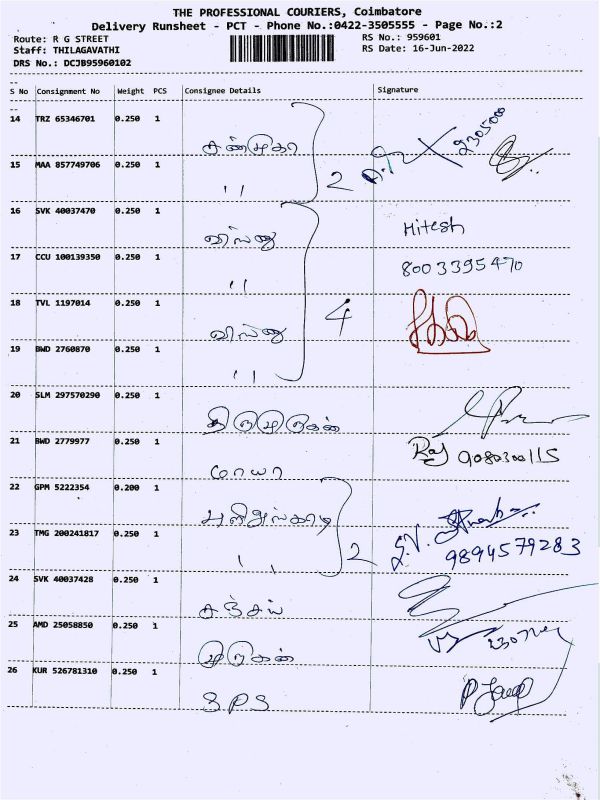 THE PROFESSIONAL COURIERS, Coimbatore
Delivery Runsheet - PCT - Phone No.:0422-3505555 - Page No.:2
Route: R G STREET
RS No.: 959601
Staff: THILAGAVATHI
RS Date: 16-Jun-2022
DRS No.: DCJB95960102
--
S No Consignment No Weight PCS Consignee Details Signature
--
14 TRZ 65346701 0.250 1
சண்முகா 2305000
15 MAA 857749706 0.250 1
,, 2
16 SVK 40037470 0.250 1
விஷ்ணு Hitesh
17 CCU 100139350 0.250 1 8003395470
,,
18 TVL 1197014 0.250 1
விஷ்ணு 4
19 BWD 2760870 0.250 1
,,
20 SLM 297570290 0.250 1
திருமுருகன்
21 BWD 2779977 0.250 1 Raj 9080300115
மாயா
22 GPM 5222354 0.200 1
23 TMG 200241817 0.250 1 S.V.
,, 2 9894579283
24 SVK 40037428 0.250 1
சஞ்சய்
25 AMD 25058850 0.250 1
முருகன்
26 KUR 526781310 0.250 1
SPS